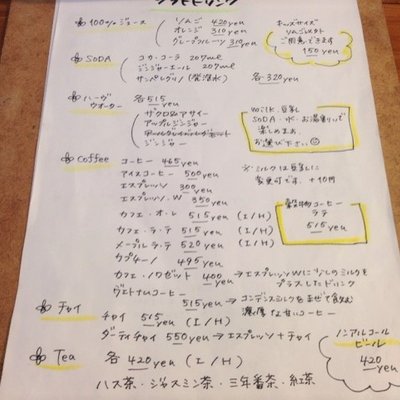 ソフトドリンク
100%ジュース
リンゴ 420yen
オレンジ 310yen
グレープフルーツ 310yen
キッズサイズ
りんごorオレンジ
ご用意できます
150yen
SODA
コカ・コーラ 207ml
ジンジャーエール 207ml
サンペレグリノ(発泡水)
各320yen
ハーブ
ウォーター
各515yen
ザクロ&アサイー
アップルジンジャー
ジンジャー
milk. 豆乳
SODA・水・お湯割りで
楽しめます。
お選び下さい☺
Coffee
コーヒー 465yen
アイスコーヒー 500yen
エスプレッソ 300yen
エスプレッソ.W 350yen
カフェ・オ・レ 515yen (I/H)
カフェ・ラ・テ 515yen (I/H)
メープルラ・テ 520yen (I/H)
カプチーノ 495yen
カフェ・ノワゼット 400yen →エスプレッソWに少しのミルクを
プラスしたドリンク
ヴェトナムコーヒー
515yen →コンデンスミルクを混ぜて飲む
濃厚な甘いコーヒー
※ミルクは豆乳に
変更可です。+10円
穀物コーヒー
ラテ
515yen
チャイ
チャイ 515yen (I/H)
ダーティチャイ 550yen →エスプレッソ+チャイ
Tea
各420yen (I/H)
ハス茶・ジャスミン茶・三年番茶・紅茶
ノンアルコール
ビール
420yen